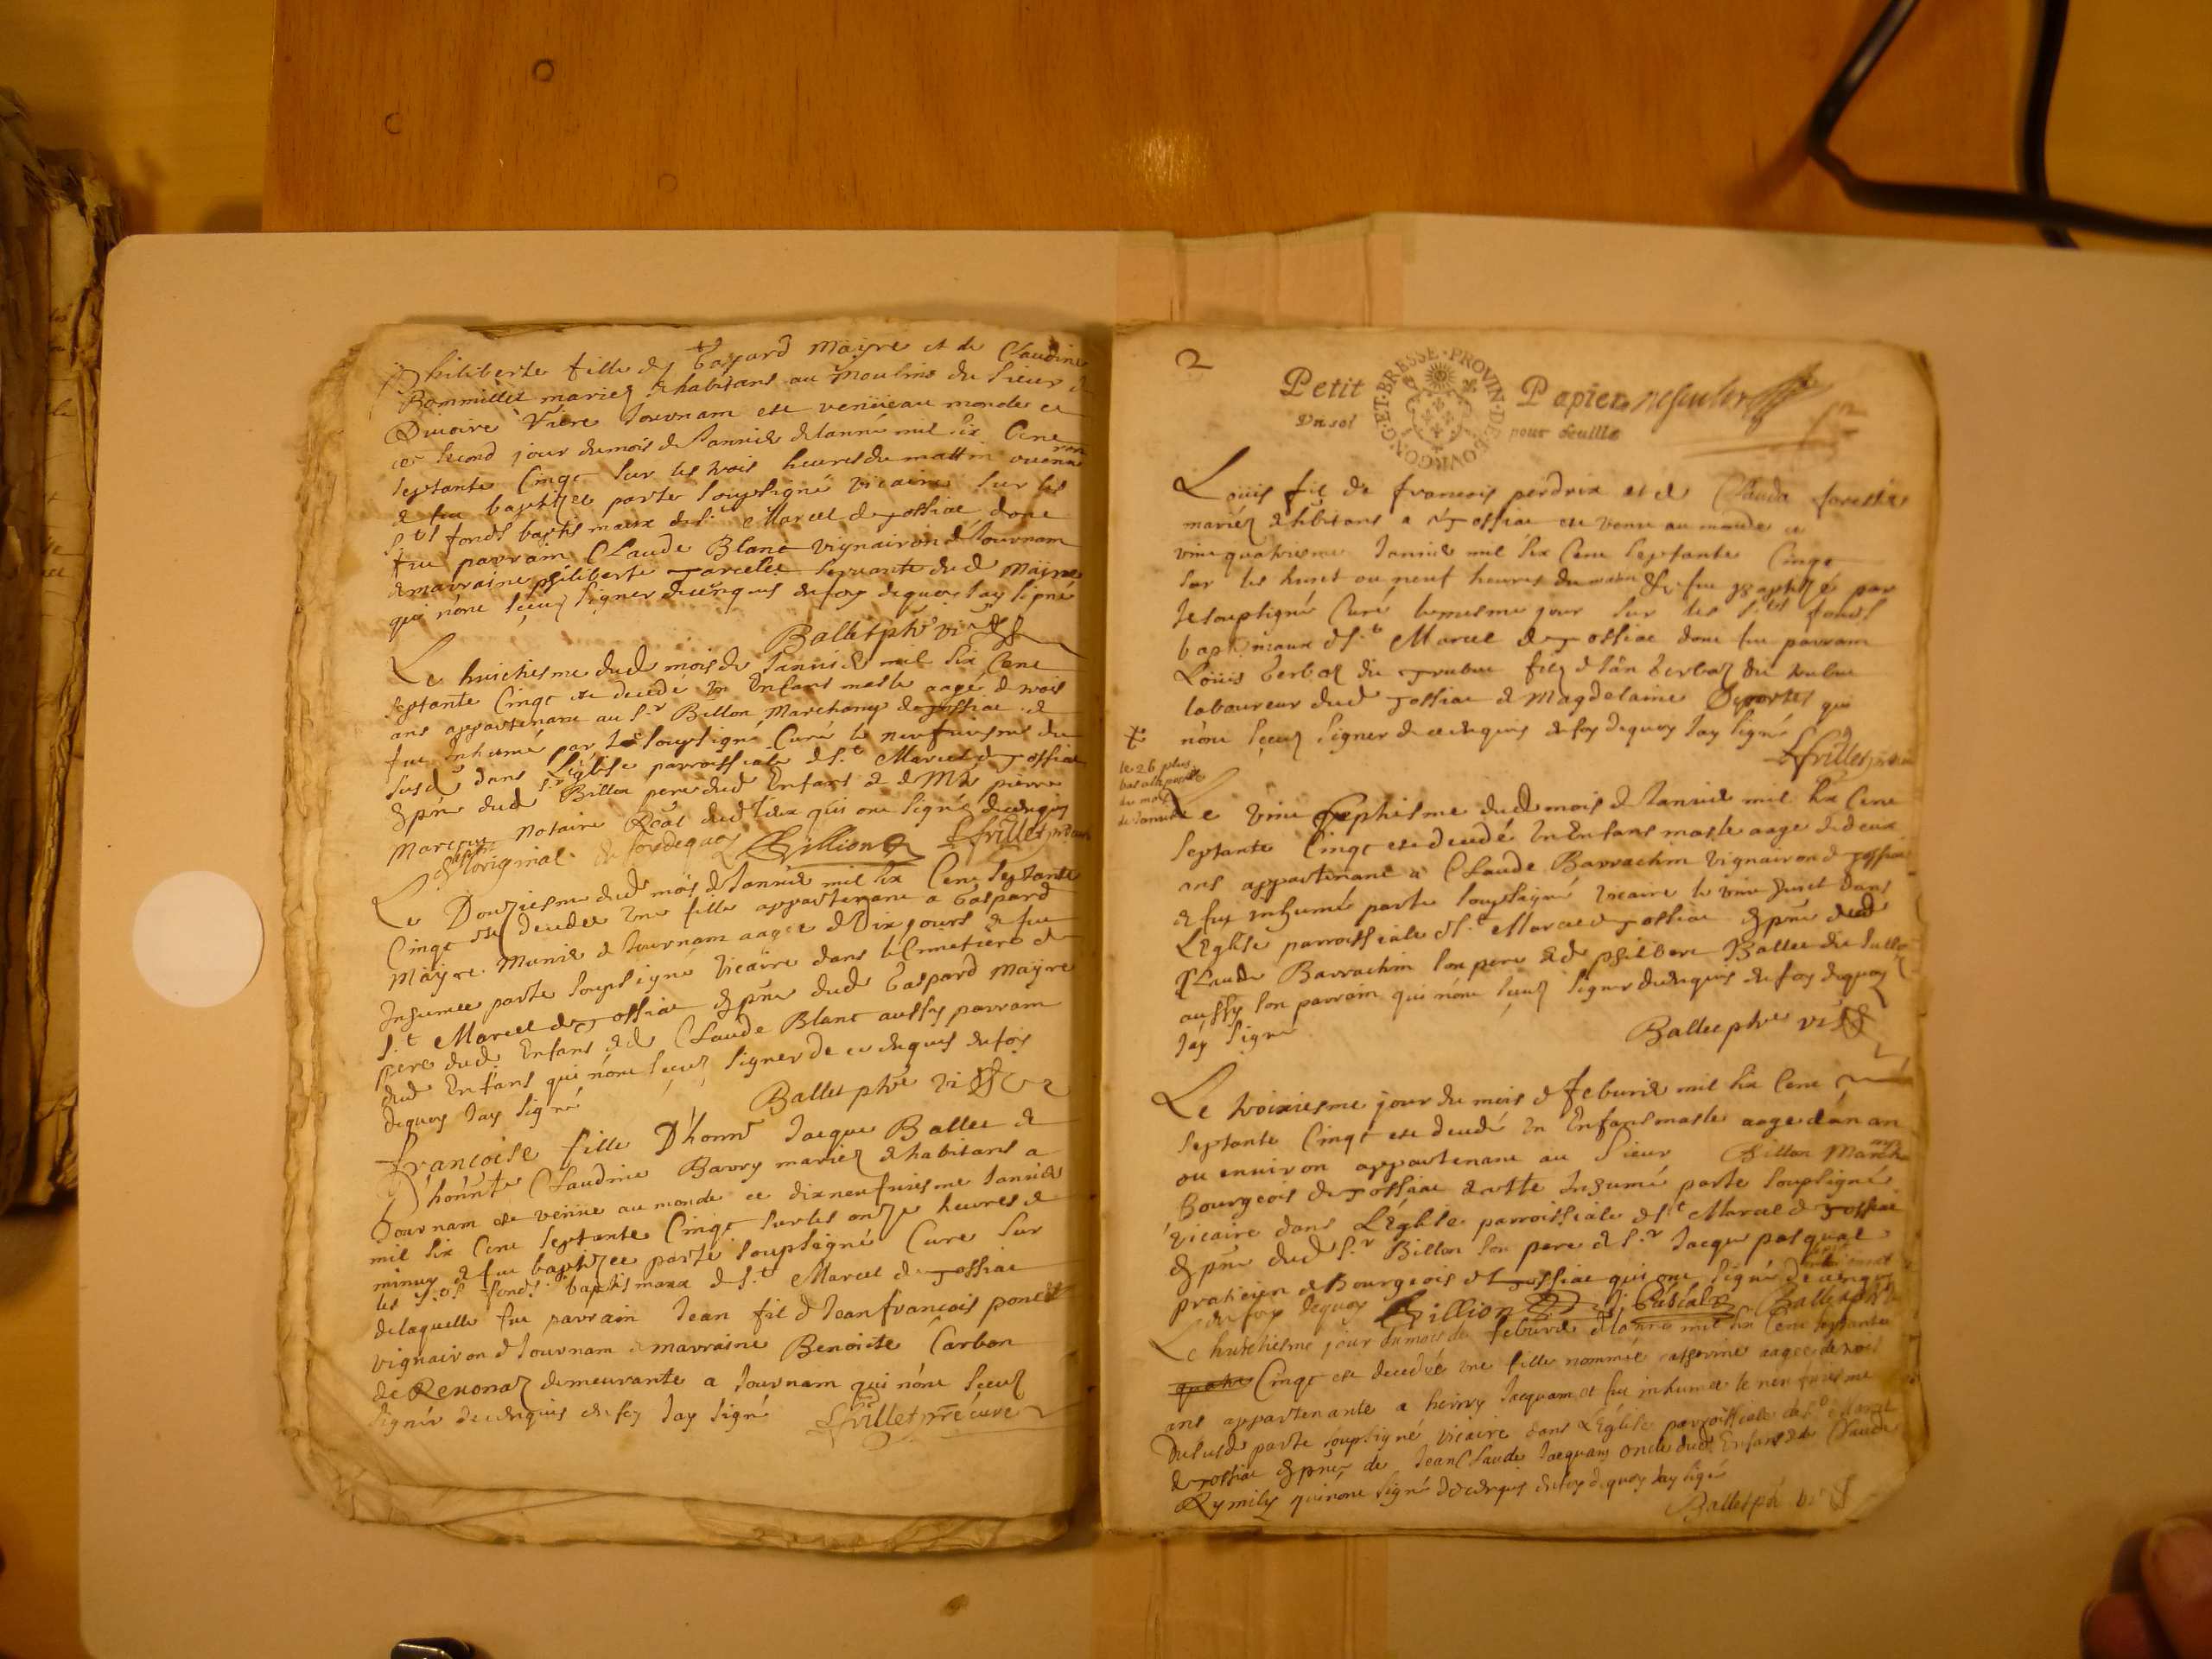 Philiberte fille de Gaspard Mayre et de Claudine
Rommillet mariez & habitans au moulins du Sieur de
Vière Journam est venüe au monde ce
second jour du mois de Janvié de lannée mil six Cent
septante Cinqt sur les trois heures du mattin ou environ
& fut baptizee par le soupsigné vicaire sur les
Sts fonds baptismaux de St Marcel de Jossiac dont
fut parrain Claude Blanc vignairon de Journam
& marraine philiberte servante dud Mayre
qui nont sceuz signer de ce enquis en foy dequoy Jay signé
Ballet ptre vi
Le huictiesme dud mois de Janvié mil six Cent
septante Cinqt est decedé un Enfant masle aagé de trois
ans appartenant au Sr Billon Marchant de Jossiac &
fut Inhumé par le soupsigné Curé le neufviesme du
susd dans L'Eglise parroissiale de St Marcel de Jossiac
& pnt dud Sr Billon pere dud Enfant & de Me pierre
Notaire Roal dud lieu qui ont signé de ce enquis
original en foy de quoy Billion Ffrillet ptre curé
Le Douziesme dud mois de Janvié mil six Cent septante
Cinqt est decedee une fille appartenant a Gaspard
Mayre Munié de Journam aagee de Dix jours & fut
Inhumee par le soupsigné vicaire dans le Cimetiere de
St Marcel de Jossiac & pnt dud Gaspard Mayre
pere dud Enfant & de Claude Blanc aussy parrain
dud Enfant qui nont sceuz signer de ce enquis en foy
dequoy Jay signé Ballet ptre vi
Françoise fille D'honnt Jacque Ballet &
D'honnte Claudine Barry mariez & habitans a
Journam est venüe au monde ce dix neufviesme Janvié
mil six Cent septante Cinqt sur les onze heures de
minuy & fut baptizee par le soupsigné Curé sur
les Sts fonds baptismaux de St Marcel de Jossiac
de laquelle fut parrain Jean fil de Jean francois poncet
vignairon de Journam & marraine Benoicte Carbon
de Rexonaz demeurante a Journam qui nont sceuz
signér de ce enquis en foy Jay signé Ffrillet ptre curé
2
Petit Papier
Un sol pour feuille
BOVRGONG·ET·BRESSE·PROVIN·DE
Loüis fil de francois perdrix et de Clauda forestier
mariéz & hbitans a Jossiac est venu au monde ce
vint quatriesme Janvié mil six Cent septante Cinqt
sur les huict ou neuf heures du matin & fut Baptizé par
le soupsigné Curé le mesme jour sur les Sts fonds
baptismaux de St Marcel de Jossiac dont fut parrain
Loüis Gerbaz dit Trubut filz de Jan Gerbaz dit trubut
laboureur dud Jossiac & Magdelaine Desportes qui
nont sceuz signer de ce enquis en foy dequoy Jay signé
Ffrillet ptre curé
le 26 plus
du mois
de Janvié
Le vint septhiesme dud mois de Janvié mil six Cent
septante Cinqt est decedé un Enfant masle aage de deux
ans appartenant a Claude Barrachin vignairon de Jossiac
& fut inhumé par le soupsigné vicaire le vint huict Dans
L'Eglise parroissiale de St Marcel de Jossiac & pnt dud
Claude Barrachin son pere & de philibert Ballet dit
aussy son parrain qui nont sceuz signer de ce enquis en foy dequoy
Jay signé Ballet ptre vi
Le troixiesme jour du mois de feburié mil six Cent
septante Cinqt est decedé un Enfant masle aage d'un an
ou environ appartenant au Sieur Billon March
Bourgeois de Jossiac & esté Inhumé par le soupsigné
vicaire dans L'Eglise parroissiale de St Marcel de Jossiac
& pnt dud Sr Billon son pere & Sr Jacque pasqual
praticien & Bourgeois de Jossiac qui ont signé de ce enquis
en foy dequoy Billion J. Pascal Ballet ptre
Le huictiesme jour du mois de feburié de lannée mil six Cent septante
quatre Cinqt est decedéé une fille nommée catherine aagee de trois
ans appartenante a henry Jacquam et fut inhumee le neufviesme
Du susd par le soupsigné vicaire dans L'Eglise parroissiale de St Marcel
de Jossiac & pnt de Jean Claude Jacquam oncle dud Enfant & de Claude
Rymily qui nont signé de ce enquis en foy dequoy Jay signé
Ballet ptre vi